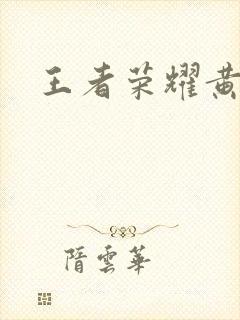 王者荣耀黄
隋雲華